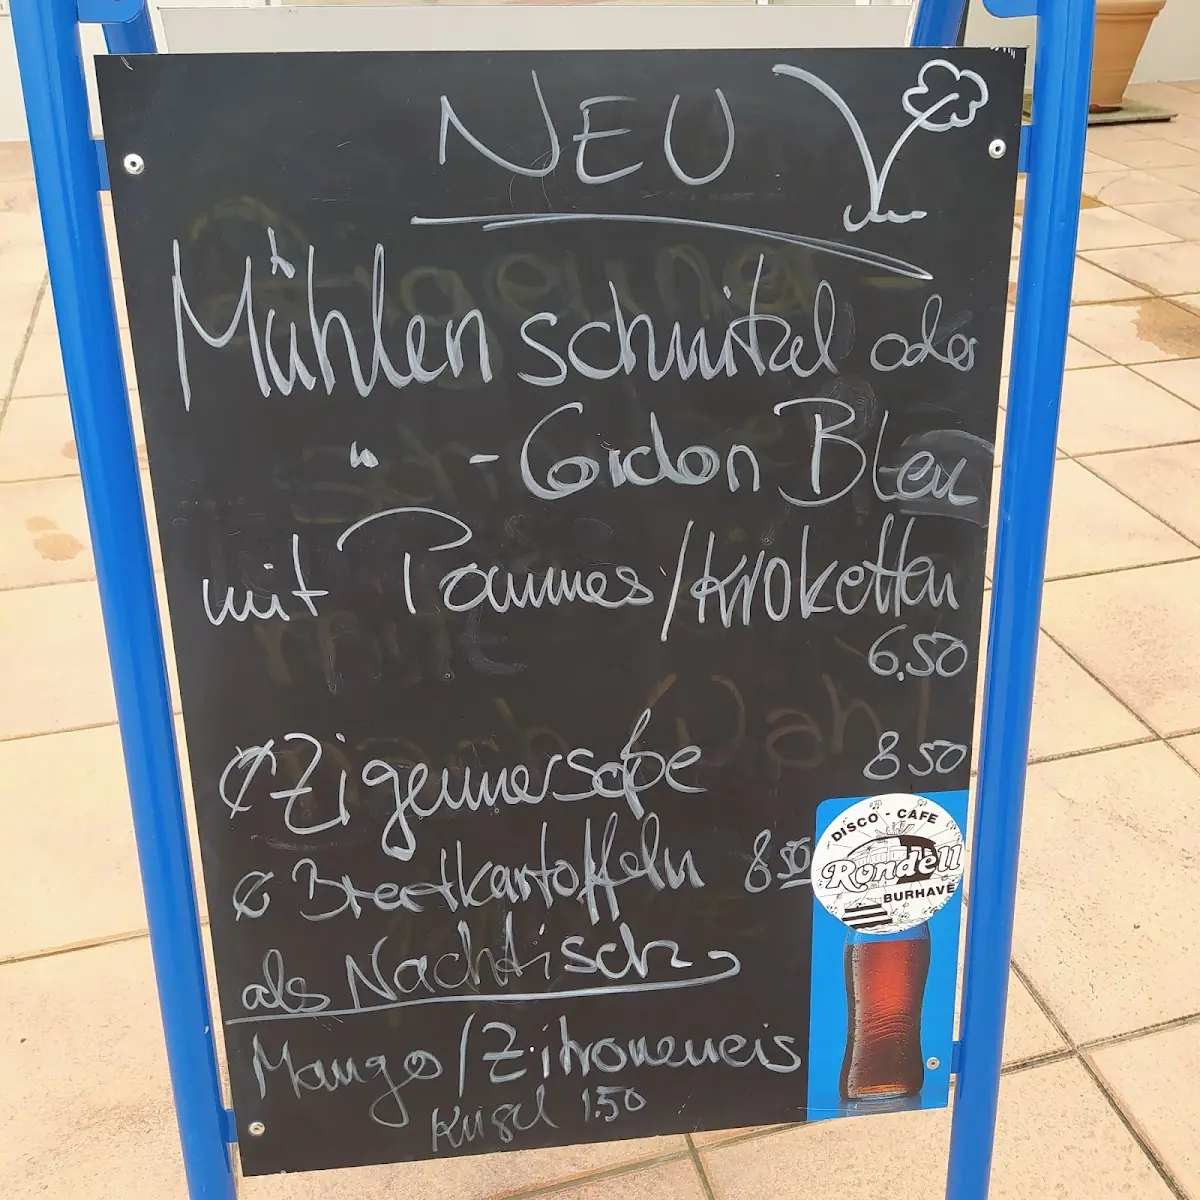 NEU
Mühlenschnitzel oder
" - Cordon Bleu
mit Pommes/Kroketten
6,50
¢ Zigeunersoße 8 50
¢ Bratkartoffeln 8 50
als Nachtisch
Mango/Zitroneneis
Kugel 1.50
DISCO - CAFE
Rondell
BURHAVE